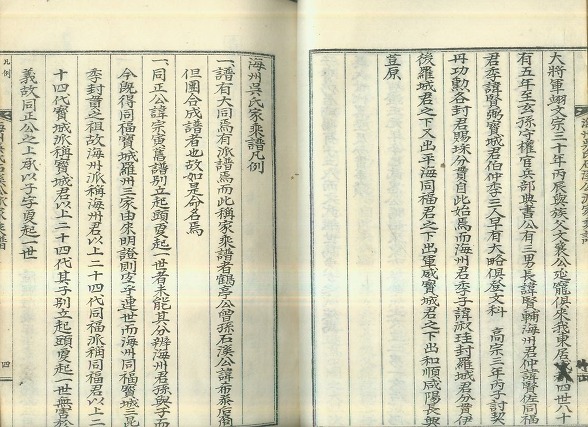 大將軍翊文宗三十年丙辰與族父文襄公延寵俱來我東居
有五年至玄孫守權官兵部典書公有三男長諱賢輔海州君仲諱賢佐同福
君季諱賢弼寶城君伯仲季三人早有大略俱登文科 高宗三年丙子討契
丹功勳各封君賜埰分貫自此始焉而海州君季子諱淑珪封羅城君分貫伊
後羅城君之下又出平海同福君之下出軍威寶城君之下出和順咸陽長興
荳原
海州吳氏家乘譜凡例
一、譜有大同焉有派譜焉而此稱家乘譜者鶴亭公曾孫石溪公諱布泰商裔
但團合成譜者也故如是命名焉
一、同正公諱宗寅舊譜別立起頭更起一世者未能其分辨海州君孫與子而
今旣得同福寶城羅州三家由來明證則玄子連世而海州同福寶城三昆
季封貫之祖故海州派稱海州君以上二十四代同福派稱同福君以上二
十四代寶城派稱寶城君以上二十四代其子別立起頭更起一世無害於
義故同正公之上承以子字更起一世
凡例
四